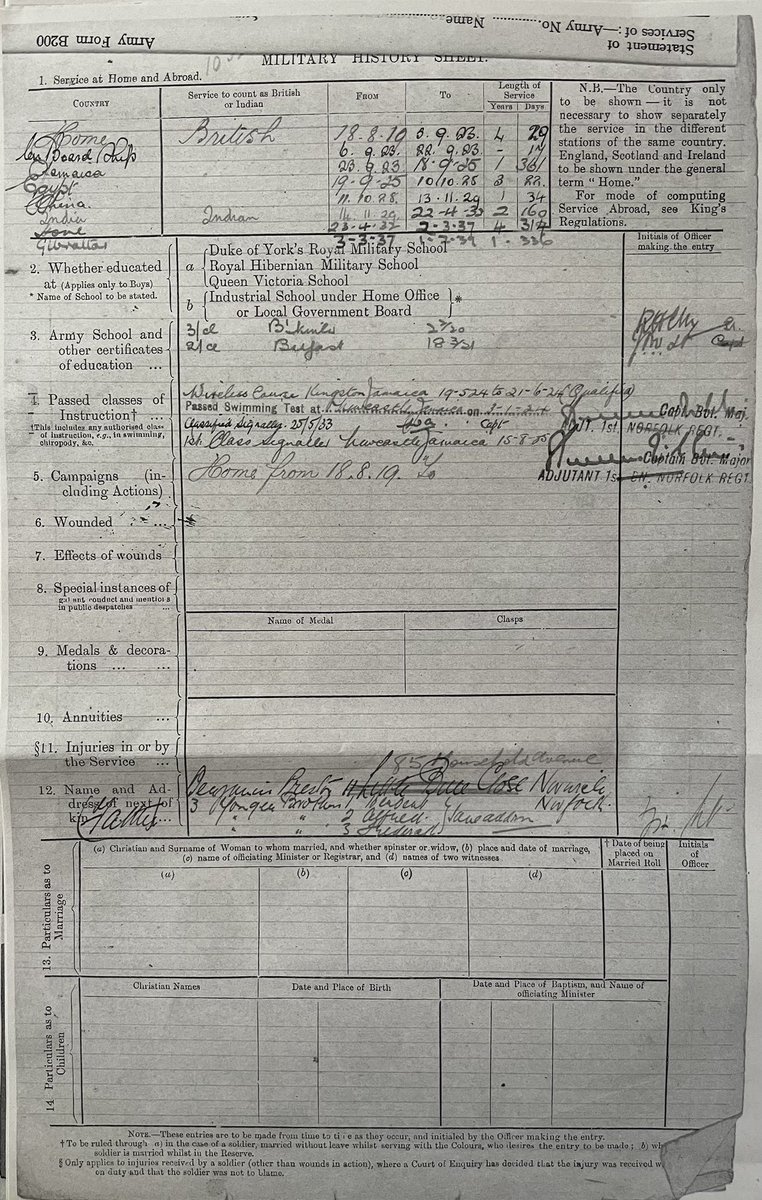 Statement of
Services of:—Army No. Name
Army Form B200
MILITARY HISTORY SHEET.
1. Service at Home and Abroad.
COUNTRY Service to count as British or Indian FROM TO Length of Service Years Days
Home British 18.8.19 5.9.23. 4 29
On Board Ship 6.9.23. 22.9.23. 17
Jamaica 23.9.23 18-9-25 1 361
Egypt 19-9-25 10/10.28 3 22
China. 11.10.28. 13.11.29 1 34
India Indian 14.11.29. 22-4-32 2 160
Home 23.4.32 2-3.37 4 314
Gibraltar 3-3-37 1 336
N.B.—The Country only
to be shown—it is not
necessary to show separately
the service in the different
stations of the same country.
England, Scotland and Ireland
to be shown under the general
term "Home."
For mode of computing
Service Abroad, see King's
Regulations.
Initials of Officer
making the entry
2. Whether educated
at (Applies only to Boys)
* Name of School to be stated.
a Duke of York's Royal Military School
Royal Hibernian Military School
Queen Victoria School
b Industrial School under Home Office
or Local Government Board *
3. Army School and
other certificates
of education ...
3/cl 2/20
2/cl Belfast 18 3/21
Capt
4. Passed classes of
Instruction† ...
†This includes any authorised class
of instruction, e.g., in swimming,
chiropody, &c.
Wireless Course Kingston Jamaica 19-5-24 to 21-6-24 (Qualified)
Passed Swimming Test at Newcastle Jamaica on
Classified Signaller. 25/5/33 Capt
1st. Class Signaller Newcastle Jamaica 15-8-25
Capt. Bvt. Maj.
ADJT. 1st. NORFOLK REGT.
Captain Bvt. Major
ADJUTANT 1st BN. NORFOLK REGT.
5. Campaigns (in-
cluding Actions)
Home from 18.8.19. To
6. Wounded ...
7. Effects of wounds
8. Special instances of
gallant conduct and mentions
in public despatches ...
Name of Medal Clasps
9. Medals & decora-
tions ... ...
10. Annuities ...
§11. Injuries in or by
the Service ...
12. Name and Ad-
dress of next of
kin
Father
185 Household Avenue
Benjamin Preston Close Norwich
3 Younger Brothers 1, Norfolk.
" " 2 Alfred
" " 3 Frederick
(a) Christian and Surname of Woman to whom married, and whether spinster or widow, (b) place and date of marriage,
(c) name of officiating Minister or Registrar, and (d) names of two witnesses
† Date of being
placed on
Married Roll
Initials
of
Officer
(a) (b) (c) (d)
13. Particulars as to
Marriage
Christian Names Date and Place of Birth Date and Place of Baptism, and Name of
officiating Minister
14 Particulars as to
Children
NOTE.—These entries are to be made from time to time as they occur, and initialed by the Officer making the entry.
† To be ruled through (a) in the case of a soldier, married without leave whilst serving with the Colours, who desires the entry to be made; (b) wh
soldier is married whilst in the Reserve.
§ Only applies to injuries received by a soldier (other than wounds in action), where a Court of Enquiry has decided that the injury was received w
on duty and that the soldier was not to blame.